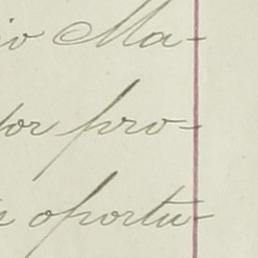 io Ma-
por pro-
oportu-